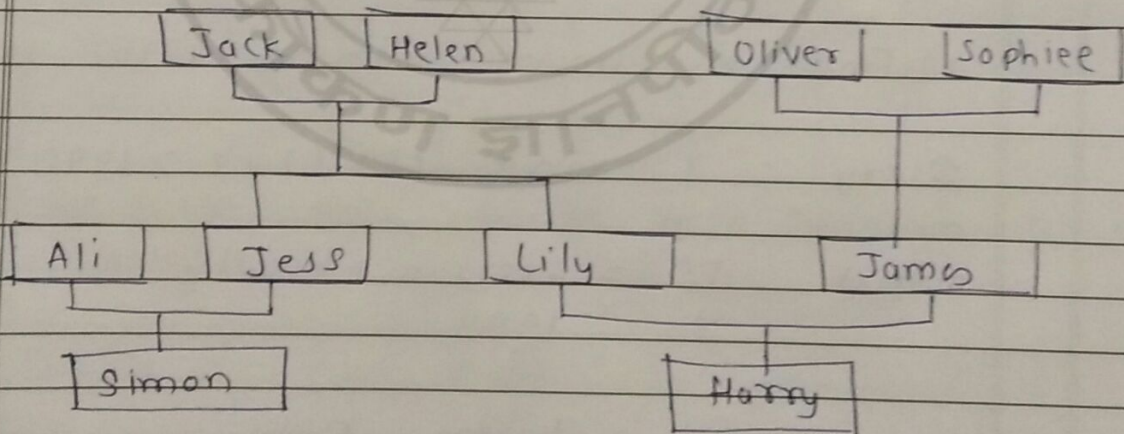 Jack Helen Oliver Sophiee
ज्ञान
Ali Jess Lily James
Simon Harry